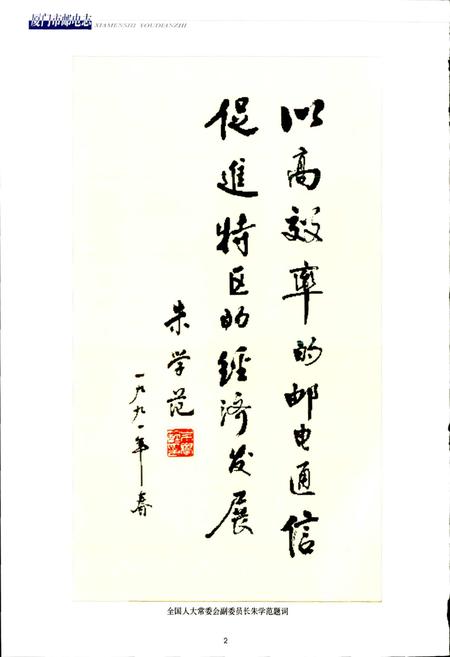 厦门市邮电志
XIAMENSHI YOUDIANZHI
以高效率的邮电通信
促進特区的經济发展
朱学范
一九九一年春
全国人大常委会副委员长朱学范题词
2